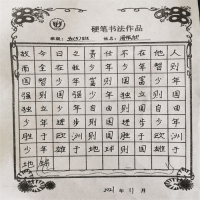 硬笔书法作品
班级: 姓名:
故今日之责任不在他人
而全在我少年少年智则
国智少年富则国富少年
强则国强少年独立则国
独立少年自由则国自由
少年进步则国进步少年
胜于欧洲则国胜于欧洲
少年雄于地球则国雄于
地球
2021年11月